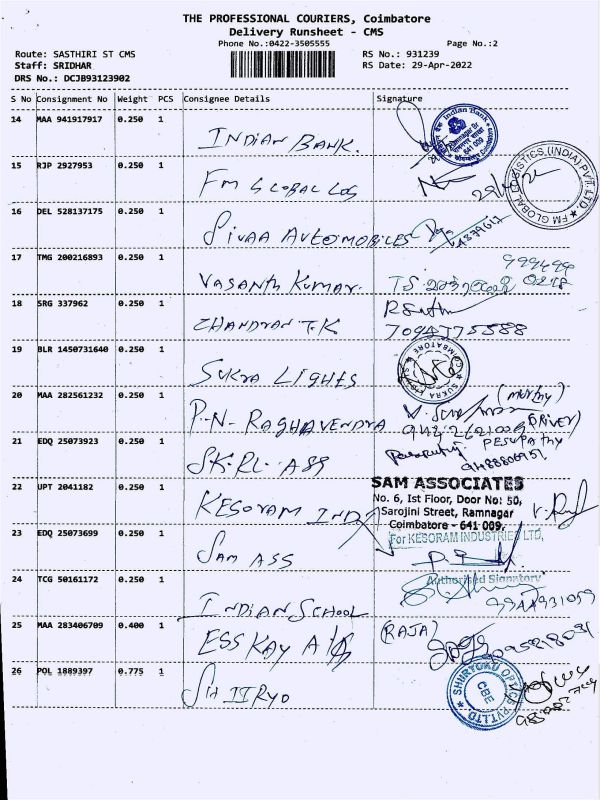 THE PROFESSIONAL COURIERS, Coimbatore
Delivery Runsheet - CMS
Phone No.:0422-3505555 Page No.:2
Route: SASTHIRI ST CMS RS No.: 931239
Staff: SRIDHAR RS Date: 29-Apr-2022
DRS No.: DCJB93123902
S No Consignment No Weight PCS Consignee Details Signature
14 MAA 941917917 0.250 1
INDIAN BANK.
Indian Bank
641 009
15 RJP 2927953 0.250 1
FM GLOBAL LOG
FM GLOBAL LOGISTICS (INDIA) PVT. LTD
16 DEL 528137175 0.250 1
SIVAA AUTOMOBILES
17 TMG 200216893 0.250 1
VASANTH KUMAR.
18 SRG 337962 0.250 1
CHANDRAN T.K
7094775588
19 BLR 1450731640 0.250 1
SUKRA LIGHTS
SUKRA COIMBATORE
20 MAA 282561232 0.250 1
P.N. RAGHAVENDRA
(MURTHY)
DRIVER)
21 EDQ 25073923 0.250 1
SK.RL. ASS
PESUPATHY
22 UPT 2041182 0.250 1
KESORAM INDS
SAM ASSOCIATES
No. 6, Ist Floor, Door No: 50,
Sarojini Street, Ramnagar
Coimbatore - 641 009.
23 EDQ 25073699 0.250 1
SAM ASS
For KESORAM INDUSTRIES LTD,
Authorised Signatory
24 TCG 50161172 0.250 1
INDIAN SCHOOL
25 MAA 283406709 0.400 1
ESS KAY A/G
(RAJA)
26 POL 1889397 0.775 1
SHURTOKU OPTICS PVT LTD
CBE